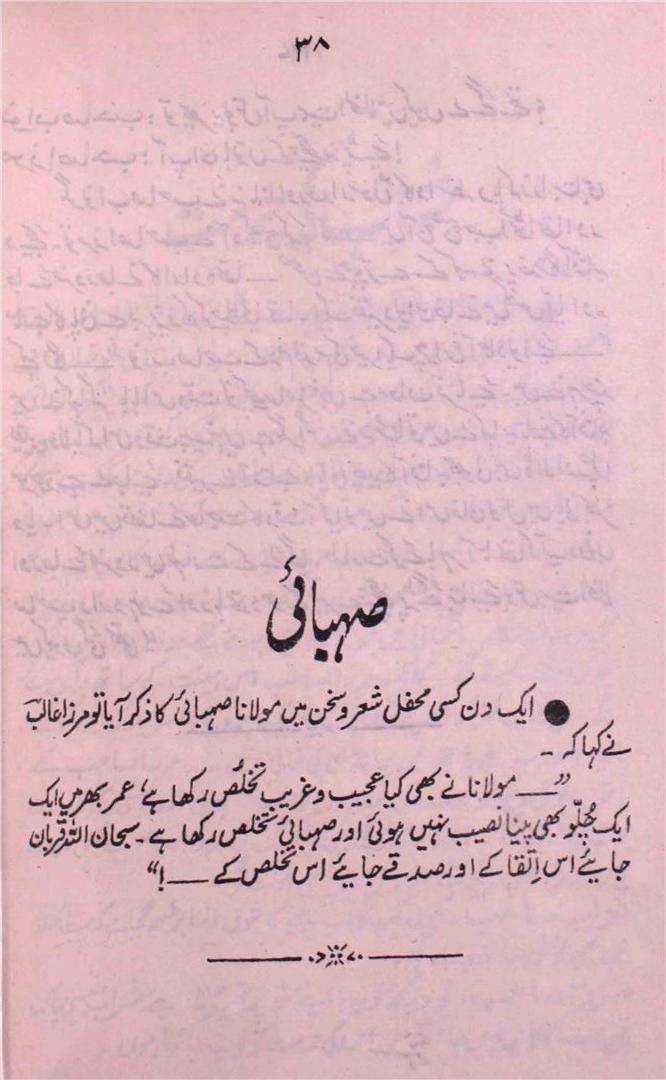 ۳۸
صہبائی
● ایک دن کسی محفل شعر و سخن میں مولانا صہبائی کا ذکر آیا تو مرزا غالبؔ
نے کہا کہ ۔
”—— مولانا نے بھی کیا عجیب و غریب تخلُص رکھا ہے، عمر بھر میں ایک
ایک چُلّو بھی پینا نصیب نہیں ہوئی اور صہبائی تخلص رکھا ہے ۔ سبحان اللہ قربان
جایئے اس اِتقا کے اور صدقے جایئے اس تخلص کے ——!“